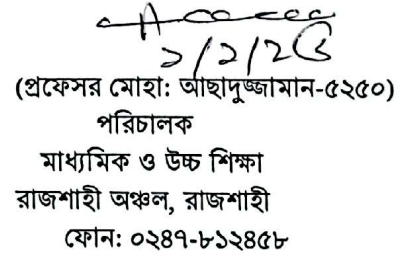 ২/২/২৬
(প্রফেসর মোহা: আছাদুজ্জামান-৫২৫০)
পরিচালক
মাধ্যমিক ও উচ্চ শিক্ষা
রাজশাহী অঞ্চল, রাজশাহী
ফোন: ০২৪৭-৮১২৪৫৮